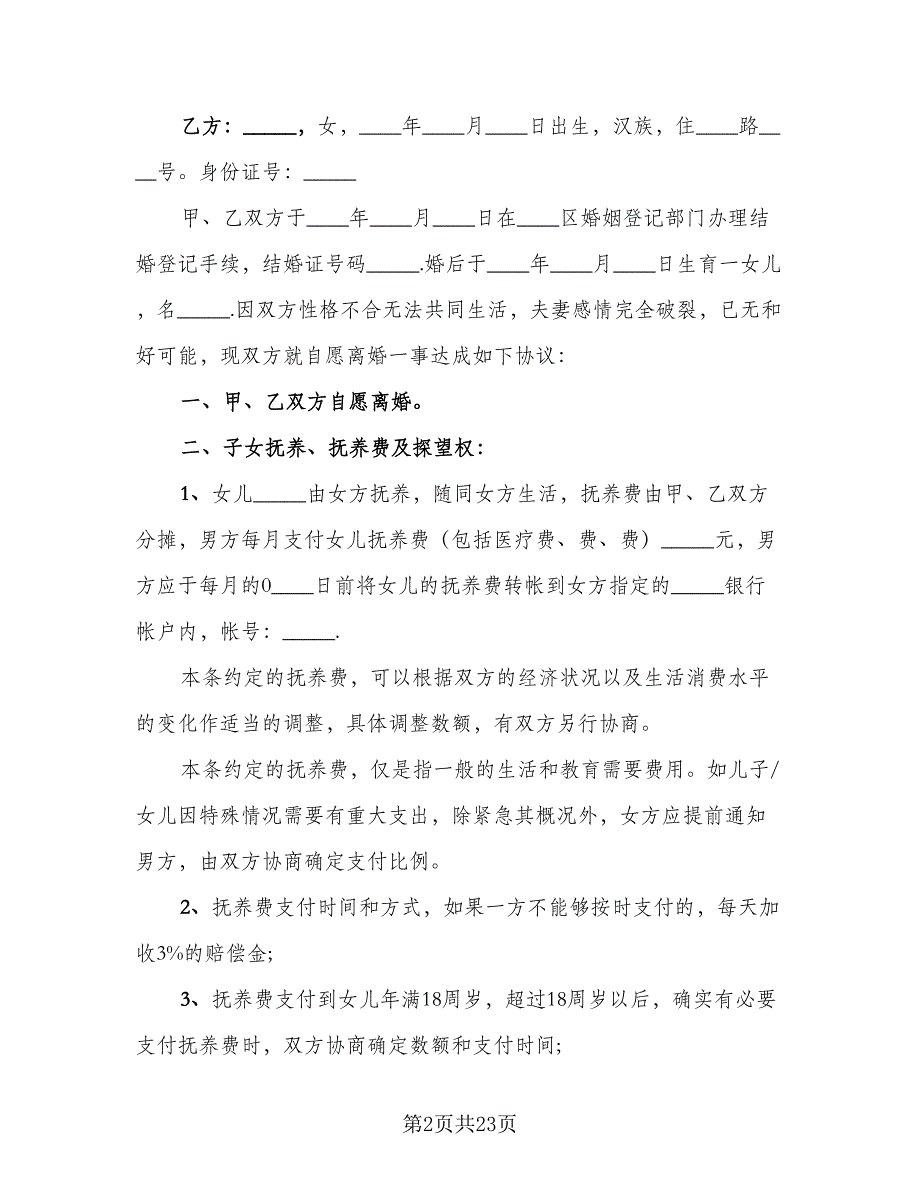 乙方：_____，女，____年____月____日出生，汉族，住____路__
__号。身份证号：_____
甲、乙双方于____年____月____日在____区婚姻登记部门办理结
婚登记手续，结婚证号码_____.婚后于____年____月____日生育一女儿
，名_____.因双方性格不合无法共同生活，夫妻感情完全破裂，已无和
好可能，现双方就自愿离婚一事达成如下协议：
一、甲、乙双方自愿离婚。
二、子女抚养、抚养费及探望权：
1、女儿_____由女方抚养，随同女方生活，抚养费由甲、乙双方
分摊，男方每月支付女儿抚养费（包括医疗费、费、费）_____元，男
方应于每月的0____日前将女儿的抚养费转帐到女方指定的_____银行
帐户内，帐号：_____.
本条约定的抚养费，可以根据双方的经济状况以及生活消费水平
的变化作适当的调整，具体调整数额，有双方另行协商。
本条约定的抚养费，仅是指一般的生活和教育需要费用。如儿子/
女儿因特殊情况需要有重大支出，除紧急其概况外，女方应提前通知
男方，由双方协商确定支付比例。
2、抚养费支付时间和方式，如果一方不能够按时支付的，每天加
收3%的赔偿金;
3、抚养费支付到女儿年满18周岁，超过18周岁以后，确实有必要
支付抚养费时，双方协商确定数额和支付时间;
第2页共23页